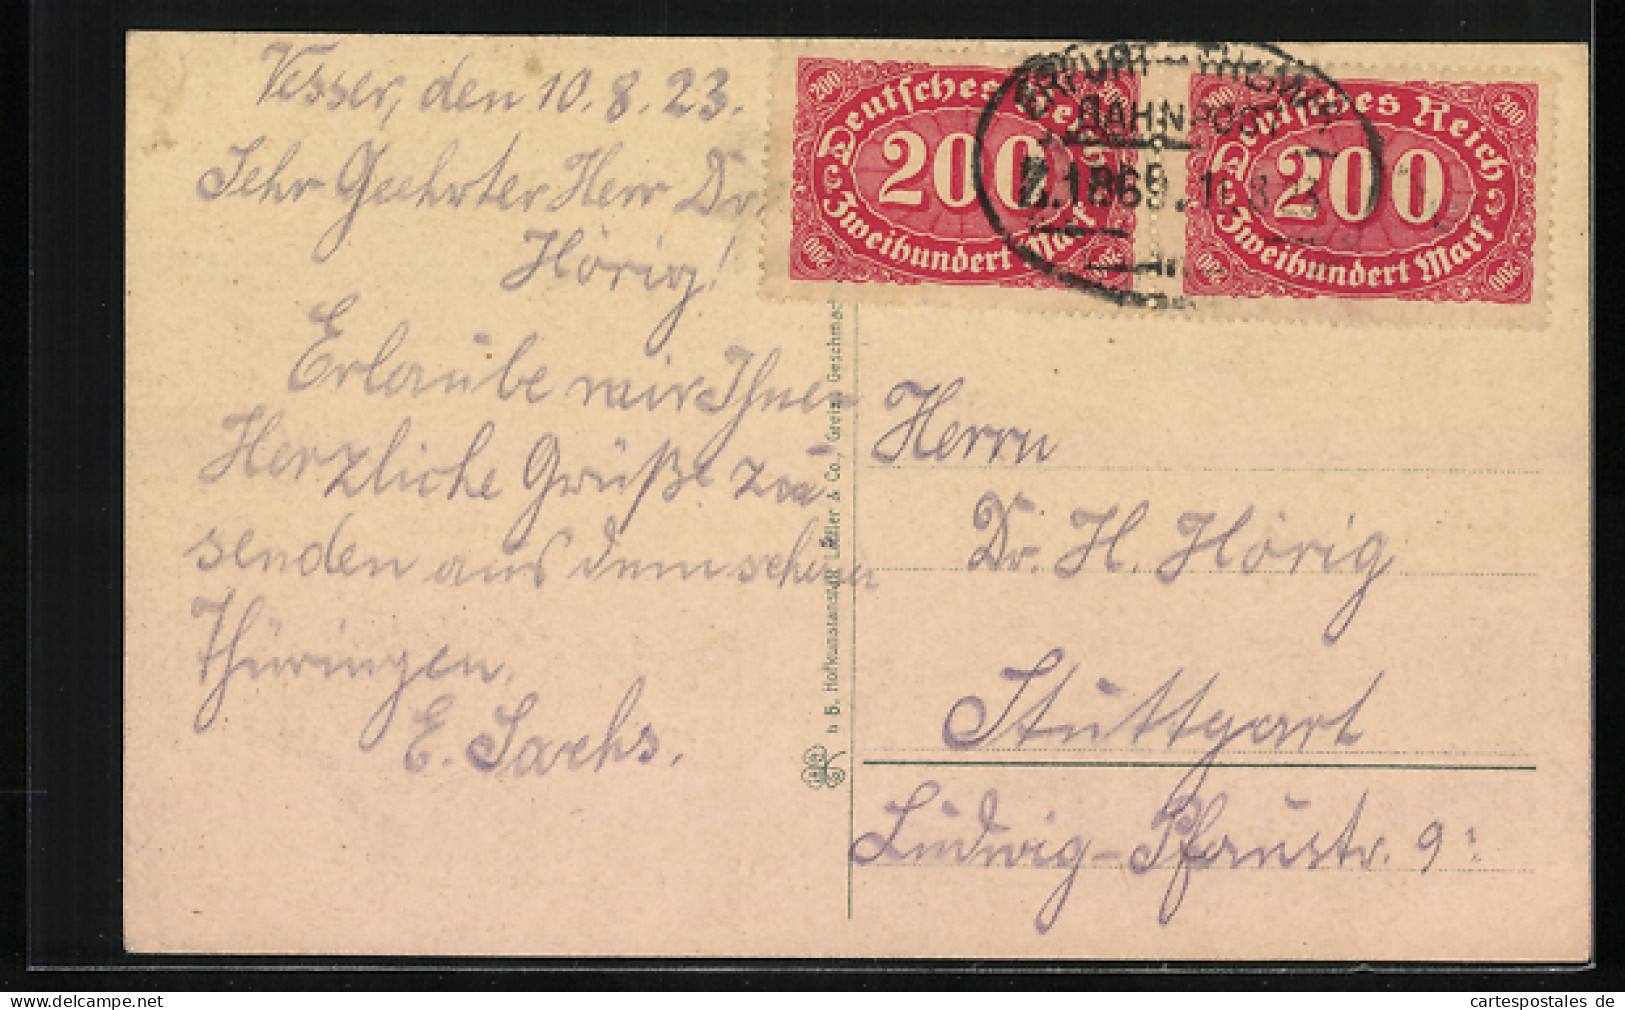 Vesser, den 10.8.23.
Sehr Geehrter Herr Dr.
Hörig!
Erlaube mir Ihnen
Herzliche Grüße zu
senden aus dem schönen
Thüringen.
E. Sachs.
Deutsches Reich
200
Zweihundert Mark
Deutsches Reich
200
Zweihundert Mark
ERFURT
BAHNPOST
Z.1869.
Hofkunstanstalt Löffler & Co., Greiz
Herrn
Dr. H. Hörig
Stuttgart
Ludwig-Pfaustr. 9
www.cartespostales.eu
cartespostales de